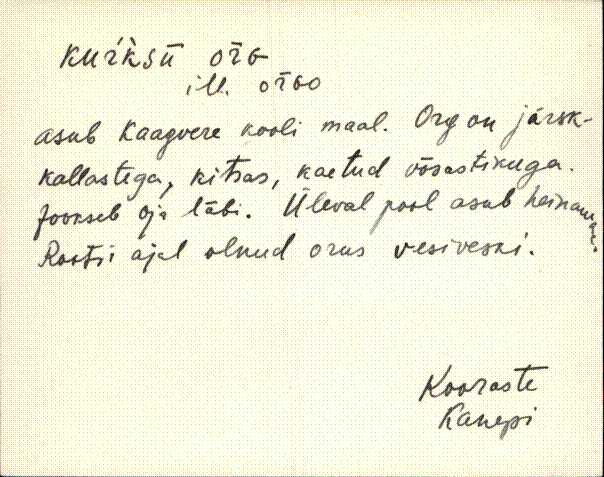 kuŕḱsü oŕg
ill. oŕgo
asub Kaagvere kooli maal. Org on järsk-
kallastega, kitsas, kaetud võsastikuga.
Jookseb oja läbi. Üleval pool asub heinamaa.
Rootsi ajal olnud orus vesiveski.
Kooraste
Kanepi